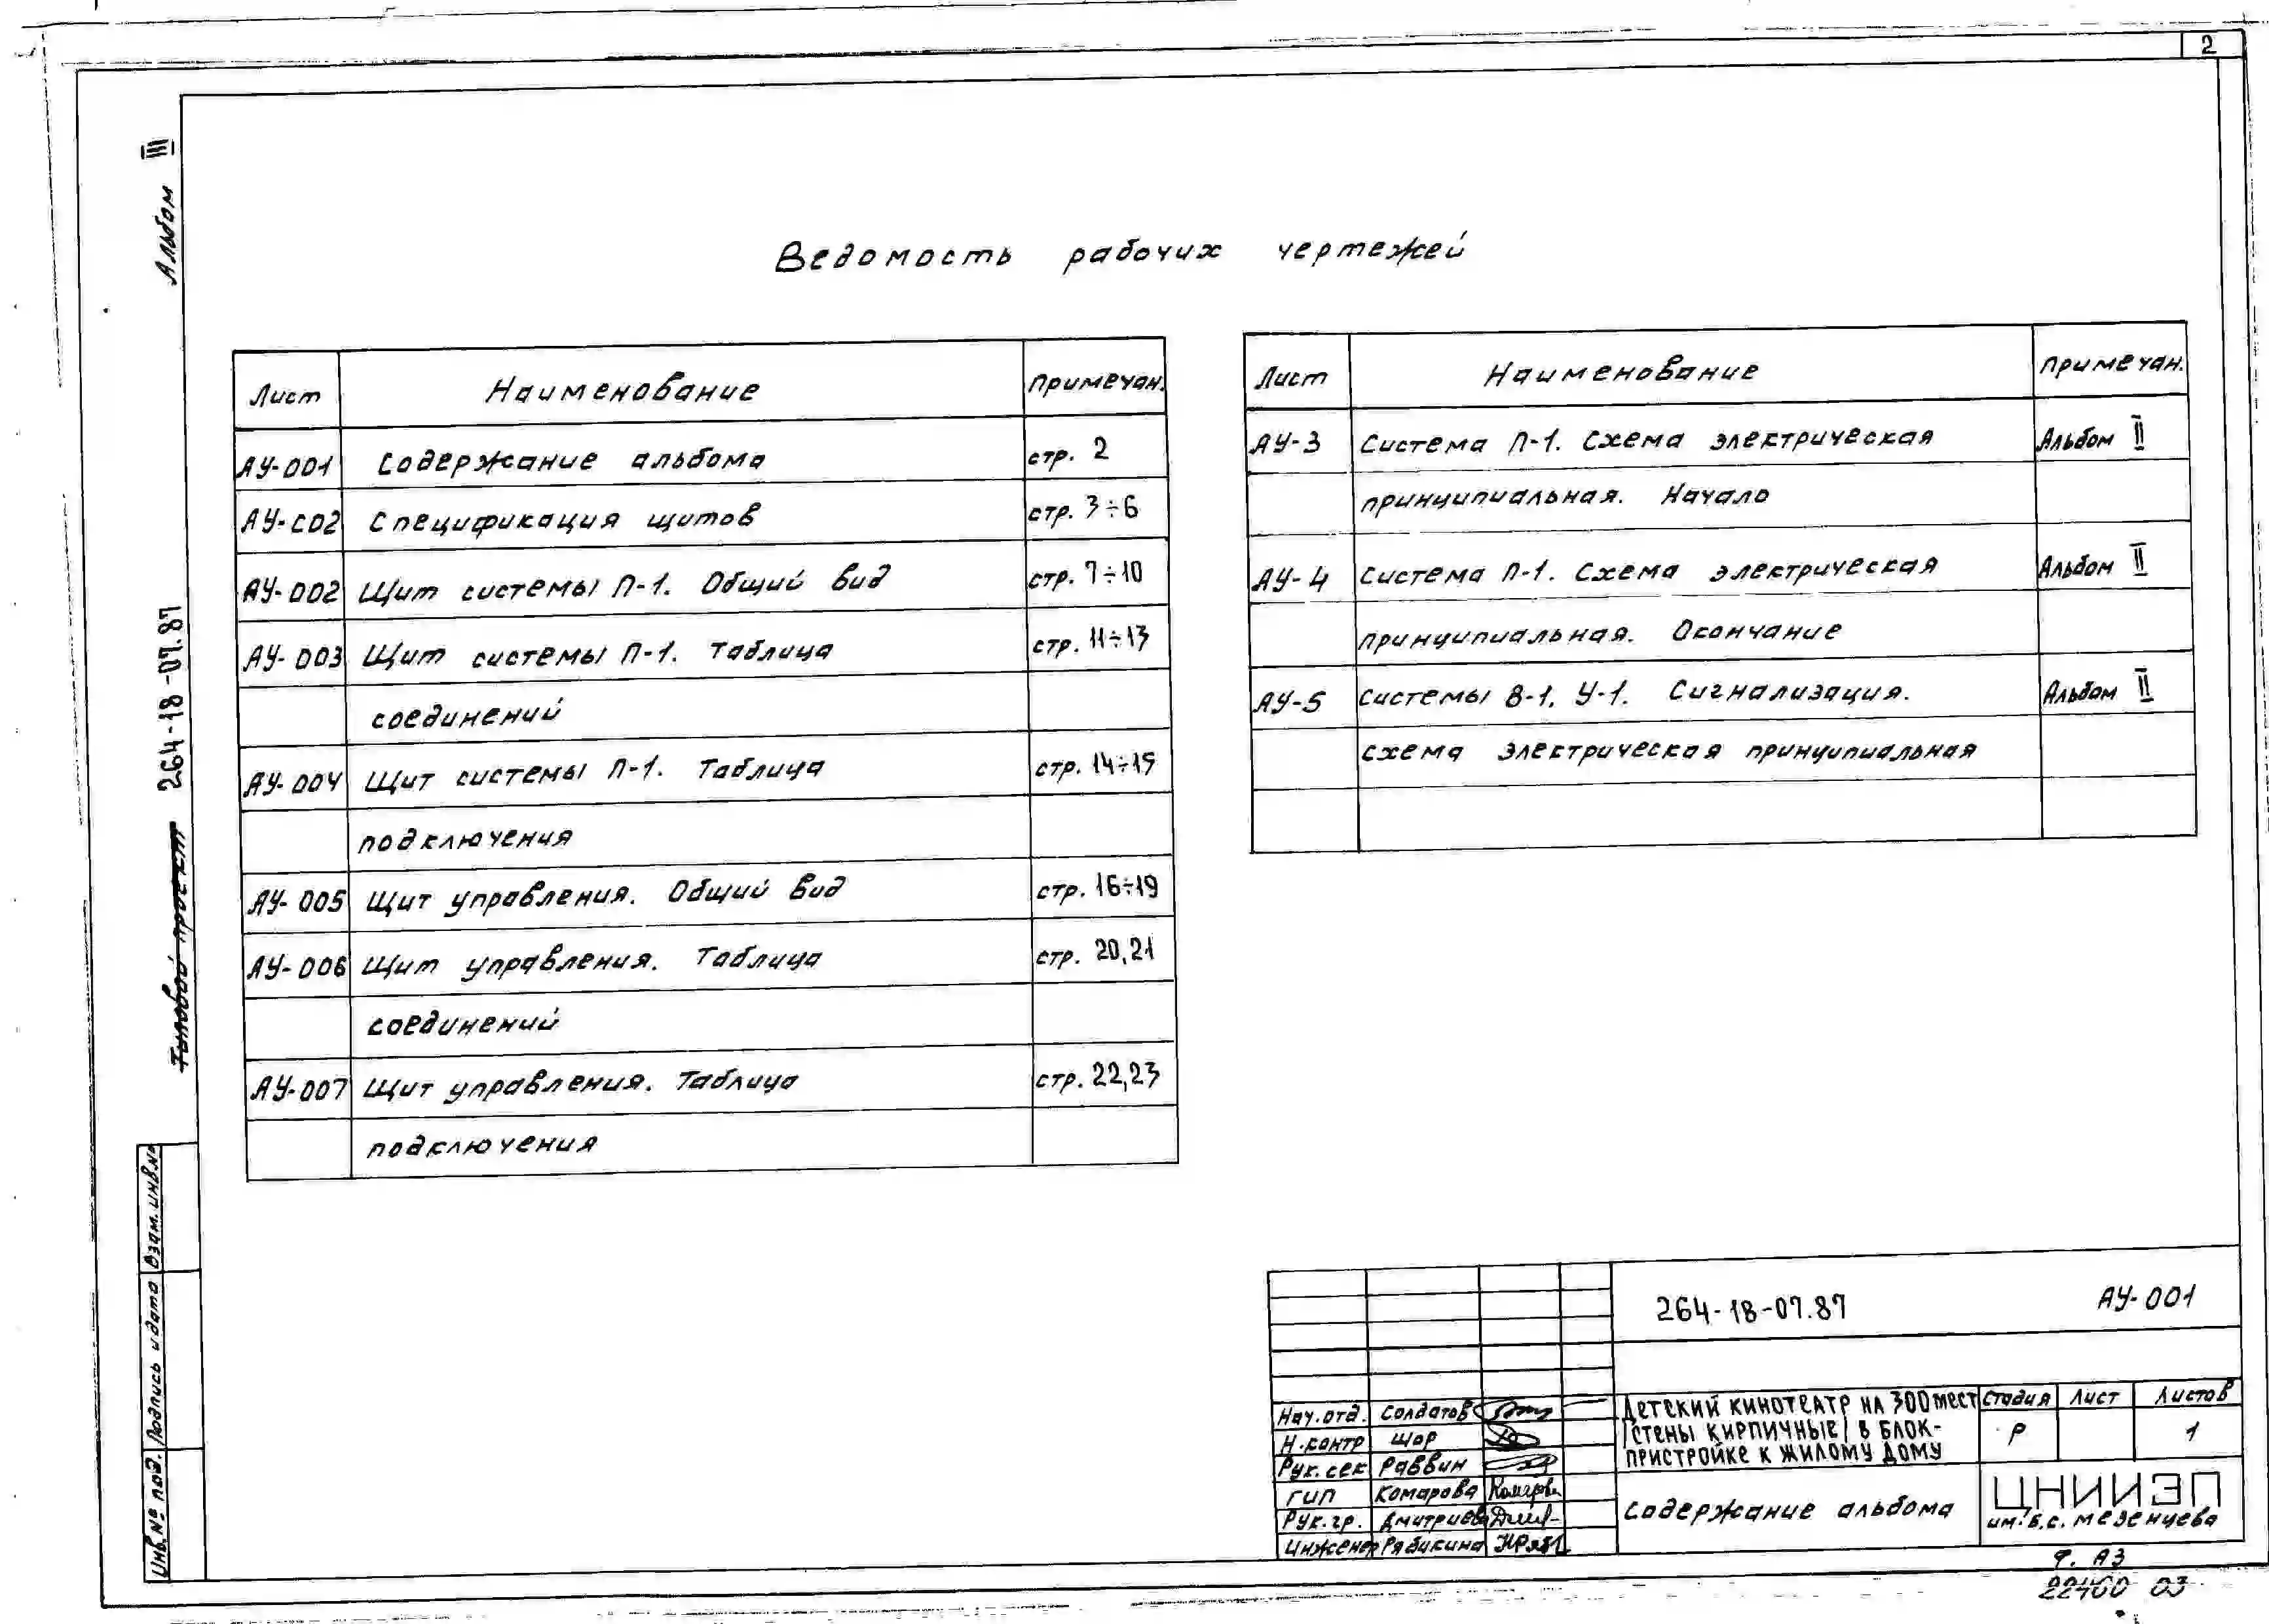 2
Альбом III
264-18-07.87
Типовой проект
Ведомость рабочих чертежей
Лист Наименование Примечан.
АУ-001 Содержание альбома стр. 2
АУ-С02 Спецификация щитов стр. 3÷6
АУ-002 Щит системы П-1. Общий вид стр. 7÷10
АУ-003 Щит системы П-1. Таблица стр. 11÷13
соединений
АУ-004 Щит системы П-1. Таблица стр. 14÷15
подключения
АУ-005 Щит управления. Общий вид стр. 16÷19
АУ-006 Щит управления. Таблица стр. 20,21
соединений
АУ-007 Щит управления. Таблица стр. 22,23
подключения
Лист Наименование Примечан.
АУ-3 Система П-1. Схема электрическая Альбом II
принципиальная. Начало
АУ-4 Система П-1. Схема электрическая Альбом II
принципиальная. Окончание
АУ-5 Системы В-1, У-1. Сигнализация. Альбом II
схема электрическая принципиальная
Взам. инв.№
Подпись и дата
Инв.№ под.
264-18-07.87 АУ-001
Нач.отд. Солдатов
Н.контр Шор
Рук.сек Раввин
ГИП Комарова
Рук.гр. Дмитриева
Инженер Рябикина
Детский кинотеатр на 300 мест
/стены кирпичные/ в блок-
пристройке к жилому дому
Стадия Лист Листов
Р 1
содержание альбома
ЦНИИЭП
им. Б.С. Мезенцева
Ф. А3
22460 03